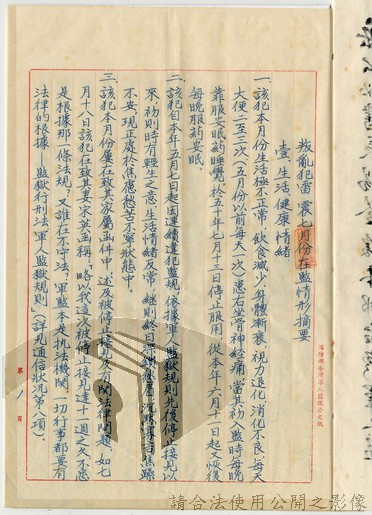 叛亂犯雷震七月份在監情形摘要
壹、生活健康情緒
一、該犯本月份生活極不正常，飲食減少，身體漸衰，視力退化，消化不良，每天
大便二至三次（五月份以前每天一次）患右坐骨神經痛，當其初入監時每晚
靠服安眠葯睡覺，於五十年七月十三日停止服用，從本年六月十一起又恢復
每晚服葯安眠。
二、該犯自本年五月七日起因連續違犯監規，依據軍人監獄規則先後停止接見以
來，初則時有輕生之意，生活情緒反常，繼則終日
不安，現正處於焦應愁苦不寧狀態中。
三、該犯本月份屢在致其家屬函件中，述及被停止接見有關法律問題，如七
月十八日該犯在致其妻宋英函稱：「略以我這次被停止接見達十一週之久不悉
是根據那一條法規？又誰在不守法？軍監本是執法機關，一切行事都要有
法律的根據—監獄行刑法，軍人監獄規則」（詳見通信狀況第八項）。
第 1 頁
國防部臺灣軍人監獄公文紙
請合法使用公開之影像